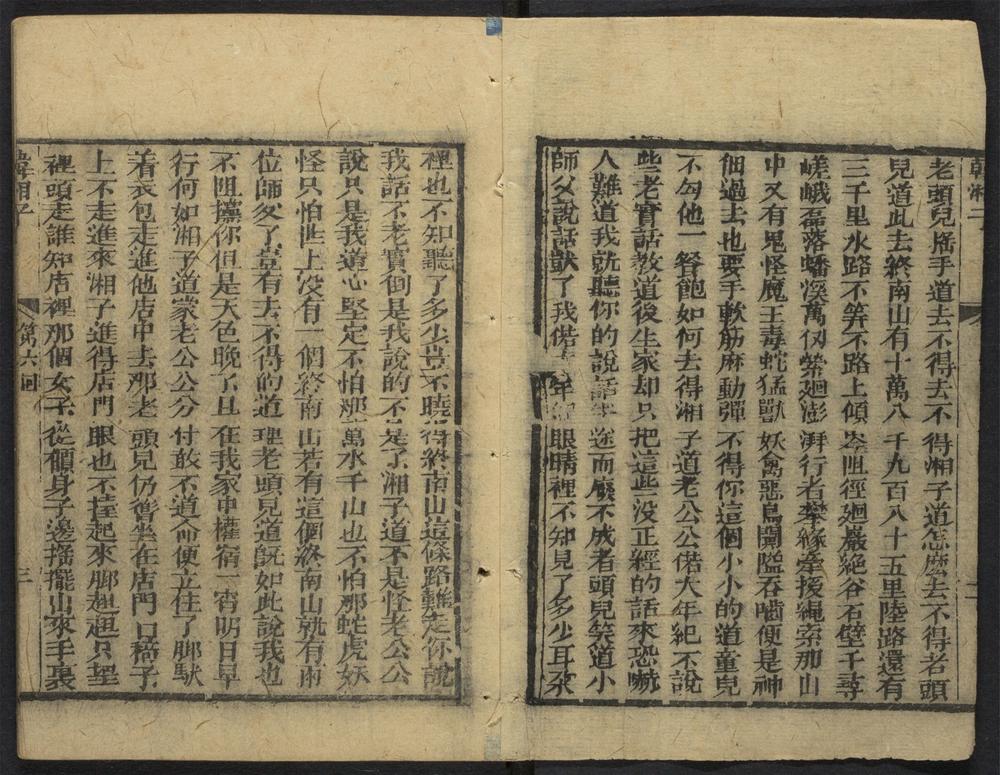 韓湘子
老頭兒搖手道去不得去不得湘子道怎麼去不得老頭
兒道此去終南山有十萬八千九百八十五里陸路還有
三千里水路不筭不路上傾岑阻徑廻巖絶谷石壁千尋
嵯峨磊落蟠溪萬仭縈廻澎湃行者攀緣牽援繩索那山
中又有鬼怪魔王毒蛇猛獸妖禽惡鳥闌隘吞噛便是神
個過去也要手軟筋麻動彈不得你這個小小的道童兒
不勾他一餐飽如何去得湘子道老公公偌大年紀不說
些老實話教道後生家却只把這些没正經的話來恐嚇
人難道我就聽你的說話半途而廢不成老頭兒笑道小
師父說話獃了我偌年紀眼睛裡不知見了多少耳朶
裡也不知聽了多少豈不曉得終南山這條路難走你說
我話不老實倒是我說的不是了湘子道不是怪老公公
說只是我道心堅定不怕那萬水千山也不怕那蛇虎妖
怪只怕世上没有一個終南山若有這個終南山就有兩
位師父了豈有去不得的道理老頭兒道既如此說我也
不阻攩你但是天色晚了且在我家中權宿一宵明日早
行何如湘子道蒙老公公分付敢不遵命便立住了脚馱
着衣包走進他店中去那老頭兒仍舊坐在店門口㮣子
上不走進來湘子進得店門眼也不擡起來脚趄趄只望
裡頭走誰知店裡那個女子從側身子邊搖擺出來手裏
韓湘子 第六回 三